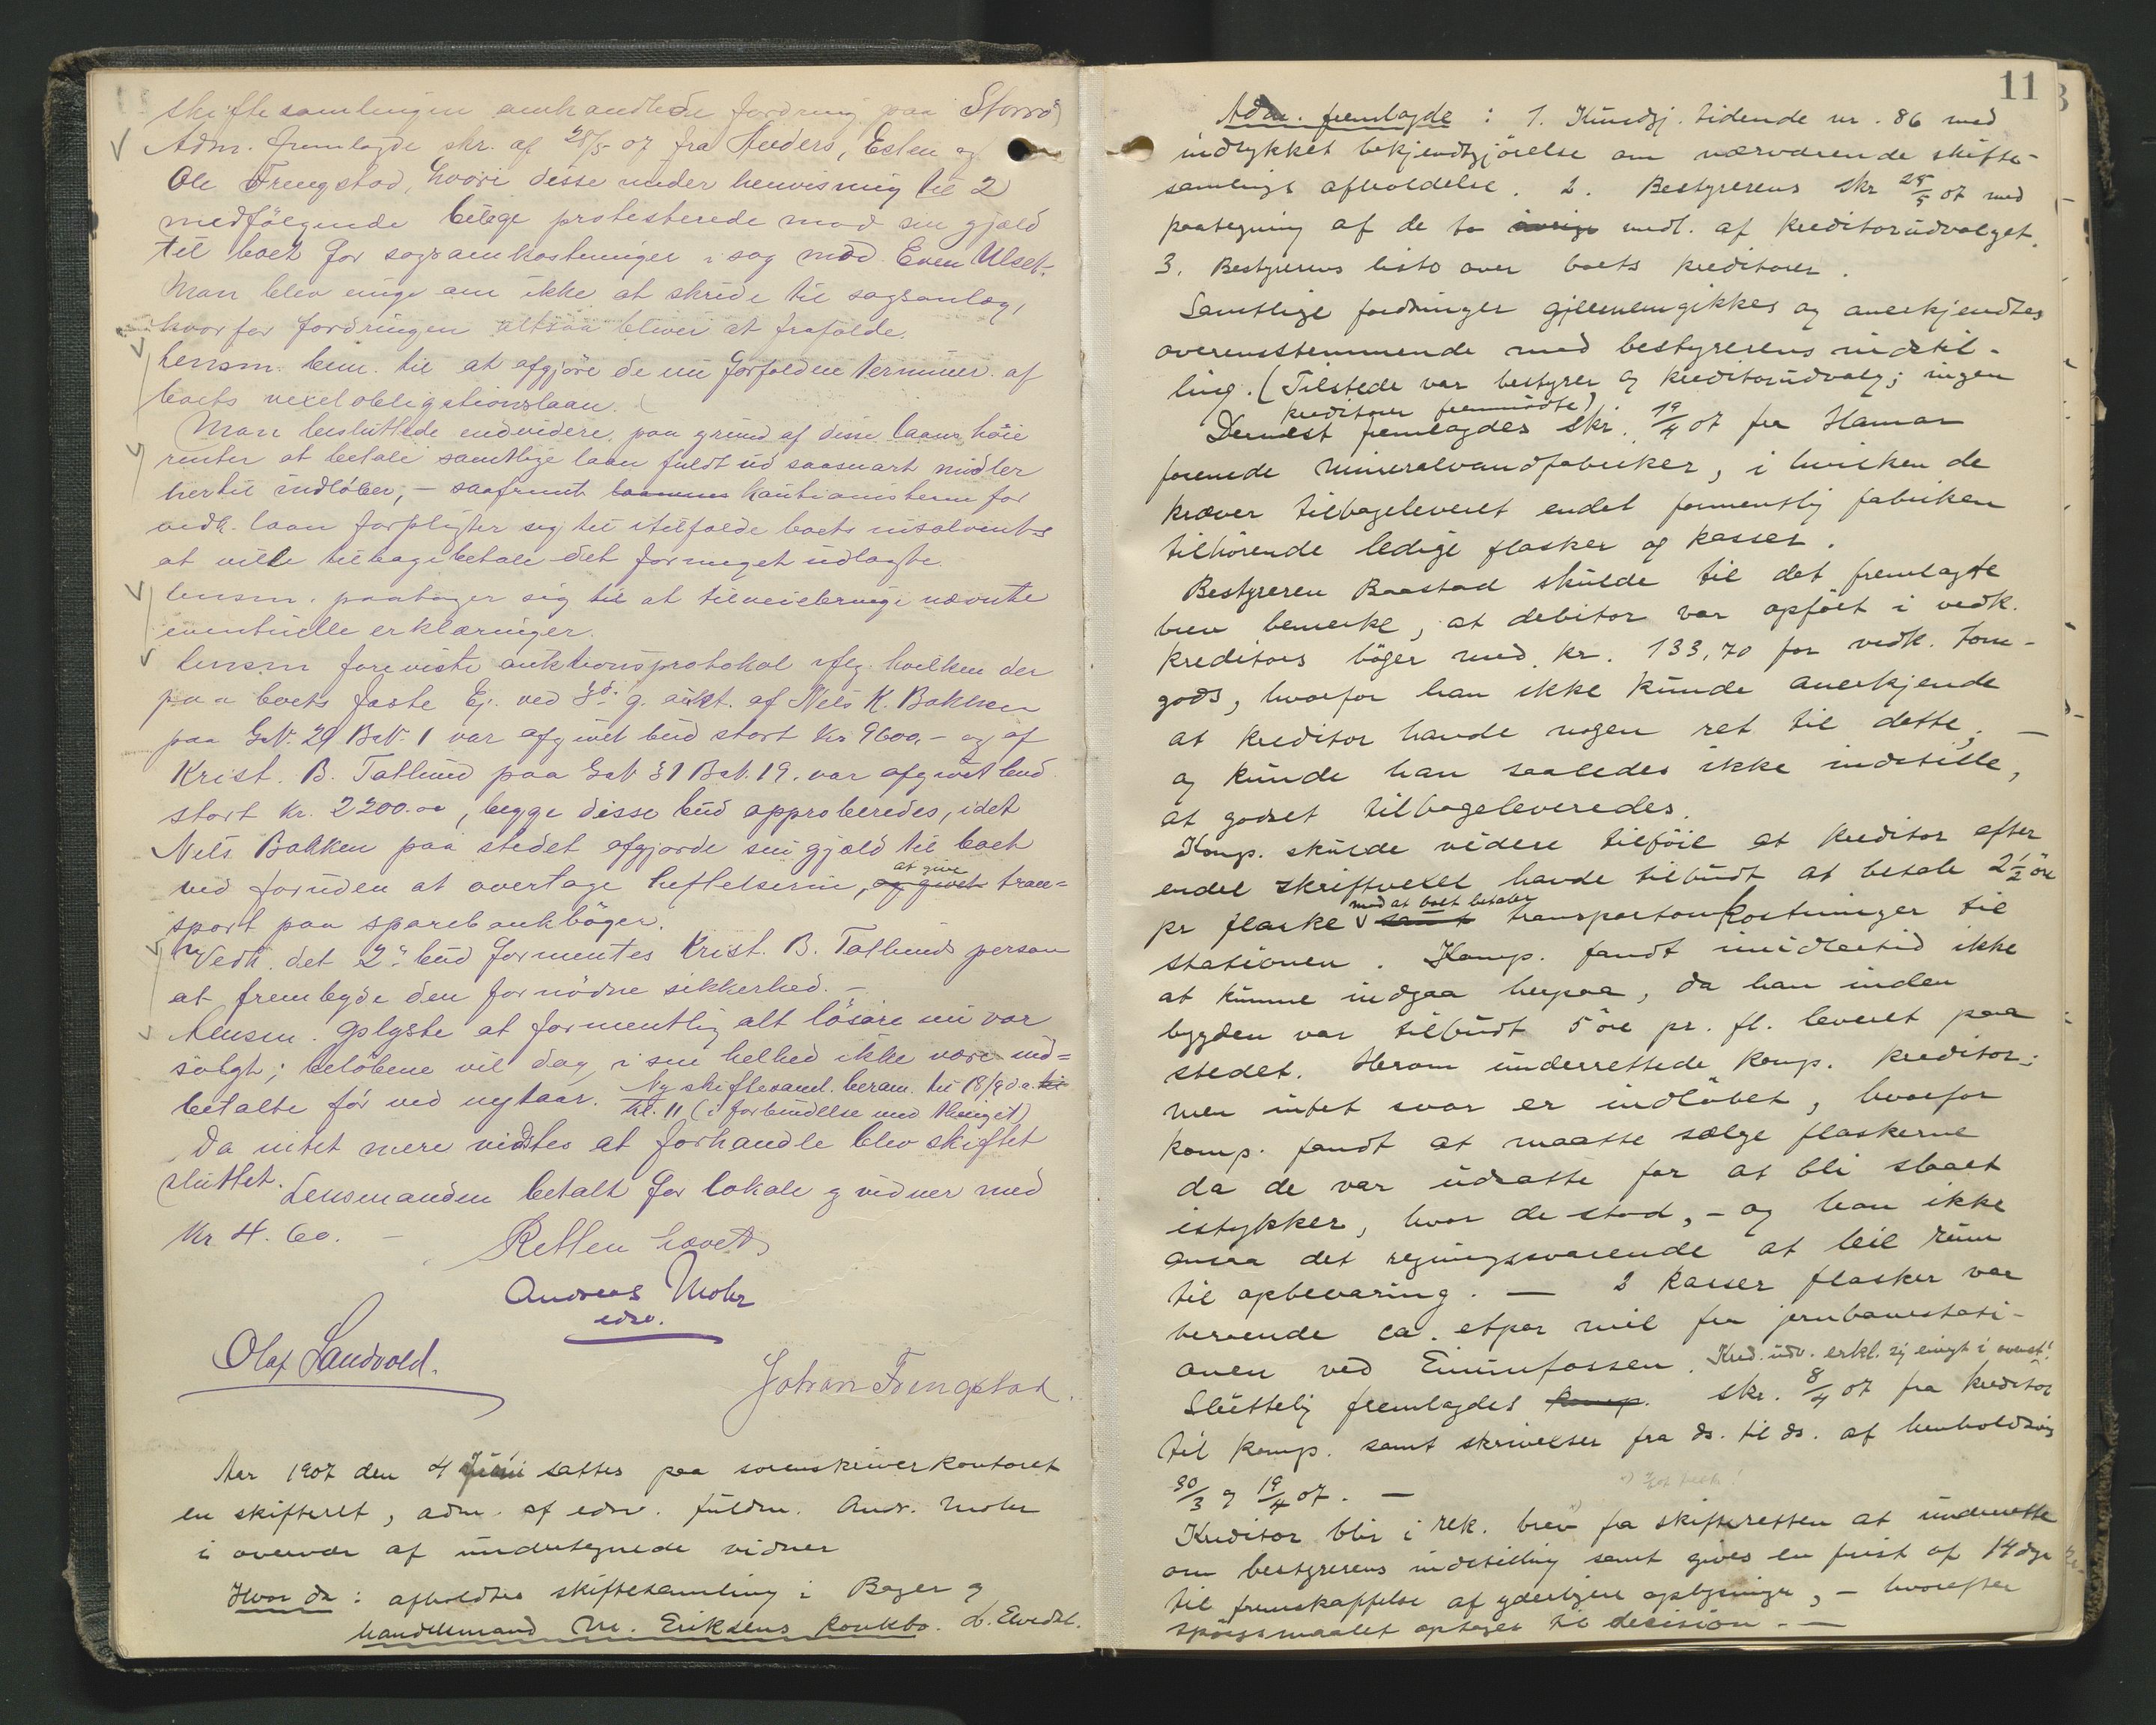 skiftesamlingen omhandlede fordring paa Storrö
Adm. fremlagde skr. af 28/5 07 fra Anders, Esten og
Ole Trengstad, hvori disse under henvisning til 2
medfölgende bilage protesterede mod sin gjæld
til boet for sagsomkostninger i sag mod Even Ulset.
Man blev enige om ikke at skride til sagsanlæg,
hvorfor fordringen altsaa bliver at frafalde.
Lensm. bem. til at afgjöre de nu forfaldne terminer af
boets vexelobligationslaan.
Man besluttede endvidere paa grund af disse laans höie
renter at betale samtlige laan fuldt ud saasnart midler
hertil indlöber, – saafremt laanenes kautionisterne for
vedk. laan forpligter sig til i tilfælde boets insolvents
at ville tilbagebetale det formeget udlagte.
Lensm. paatager sig til at tilveiebringe nævnte
eventuelle erklæringer.
Lensm foreviste auktionsprotokol iflg. hvilken der
paa boets faste Ej. ved 3die g. aukt. af Nils K. Bakken
paa G.N. 29 B.N. 1 var afgivet bud stort kr 9600,- og af
Krist. B. Tallund paa G.N 31 B.N. 19. var afgivet bud
stort kr. 2200.00, begge disse bud approberedes, idet
Nils Bakken paa stedet afgjorde sin gjæld til boet
at give
ved foruden at overtage heftelserne, og givet tran=
sport paa sparebankböger.
Vedk. det 2det bud formentes Krist. B. Tallunds person
at frembyde den fornödne sikkerhed. –
Lensm. oplyste at formentlig alt lösöre nu var
solgt; belöbene vil dog i sin helhed ikke være ind=
betalte för ved nytaar. Ny skiftesaml. beram. til 18/9 d.a. kl
kl. 11 (i forbindelse med thinget)
Da intet mere vidstes at forhandle blev skiftet
sluttet. Lensmanden betalt for lokale og vidner med
Kr 4.60. – Retten hævet
Andreas Mohr
edsv.
Olaf Sandvold.
Johan Trengstad.
Aar 1907 den 4 Juni sattes paa sorenskriverkontoret
en skifteret, adm. af edsv. fuldm. Andr. Mohr
i overvær af undertegnede vidner
Hvor da: afholdtes skiftesamling i Bager og
handelsmand M. Eriksens konkbo. L. Elvedal.
11
Adm. fremlagde: 1. Kundgj. tidende nr. 86 med
indrykket bekjendtgjörelse om nærværende skifte-
samlings afholdelse. 2. Bestyrerens skr 28/5 07 med
paategning af de to övrige medl. af kreditorudvalget.
3. Bestyrerens liste over boets kreditorer.
Samtlige fordringer gjennemgikkes og anerkjendtes
overensstemmende med bestyrerens indstil-
ling. (Tilstede var bestyrer og kreditorudvalg; ingen
kreditorer fremmödte)
Dernæst fremlagdes skr. 19/4 07 fra Hamar
forenede mineralvandfabriker, i hvilken de
kræver tilbageleveret endel formentlig fabriken
tilhörende ledige flasker og kasser.
Bestyreren Baastad skulde til det fremlagte
brev bemerke, at debitor var opfört i vedk.
kreditors böger med kr. 133,70 for vedk. tom-
gods, hvorfor han ikke kunde anerkjende
at kreditor havde nogen ret til dette, –
og kunde han saaledes ikke indstille,
at godset tilbageleveredes.
Komp. skulde videre tilföie at kreditor efter
endel skriftvexel havde tilbudt at betale 2 1/2 öre
mod at boet betaler
pr flaske samt transportomkostninger til
stationen. Komp. fandt imidlertid ikke
at kunne indgaa herpaa, da han inden
bygden var tilbudt 5 öre pr. fl. leveret paa
stedet. Herom underrettede komp. kreditor;
men intet svar er indlöbet, hvorfor
komp. fandt at maatte sælge flaskerne
da de var udsatte for at bli slaaet
istykker, hvor de stod, – og han ikke
ansaa det regningssvarende at leie rum
til opbevaring. – 2 kasser flasker var
beroende ca. etpar mil fra jernbanestati-
onen ved Eiminfossen. Kred. udv. erkl. sig enigt i ovenst.!
Sluttelig fremlagdes komp. skr. 8/4 07 fra kreditor
til komp. samt skrivelser fra ds. til ds. af henholdsvis
30/3 og 19/4 07. –
Kreditor blir i rek. brev fra skifteretten at underrette
om bestyrerens indstilling samt gives en frist af 14 dge
til fremskaffelse af yderligere oplysninger, – hvorefter
spörgsmaalet optages til decision. –